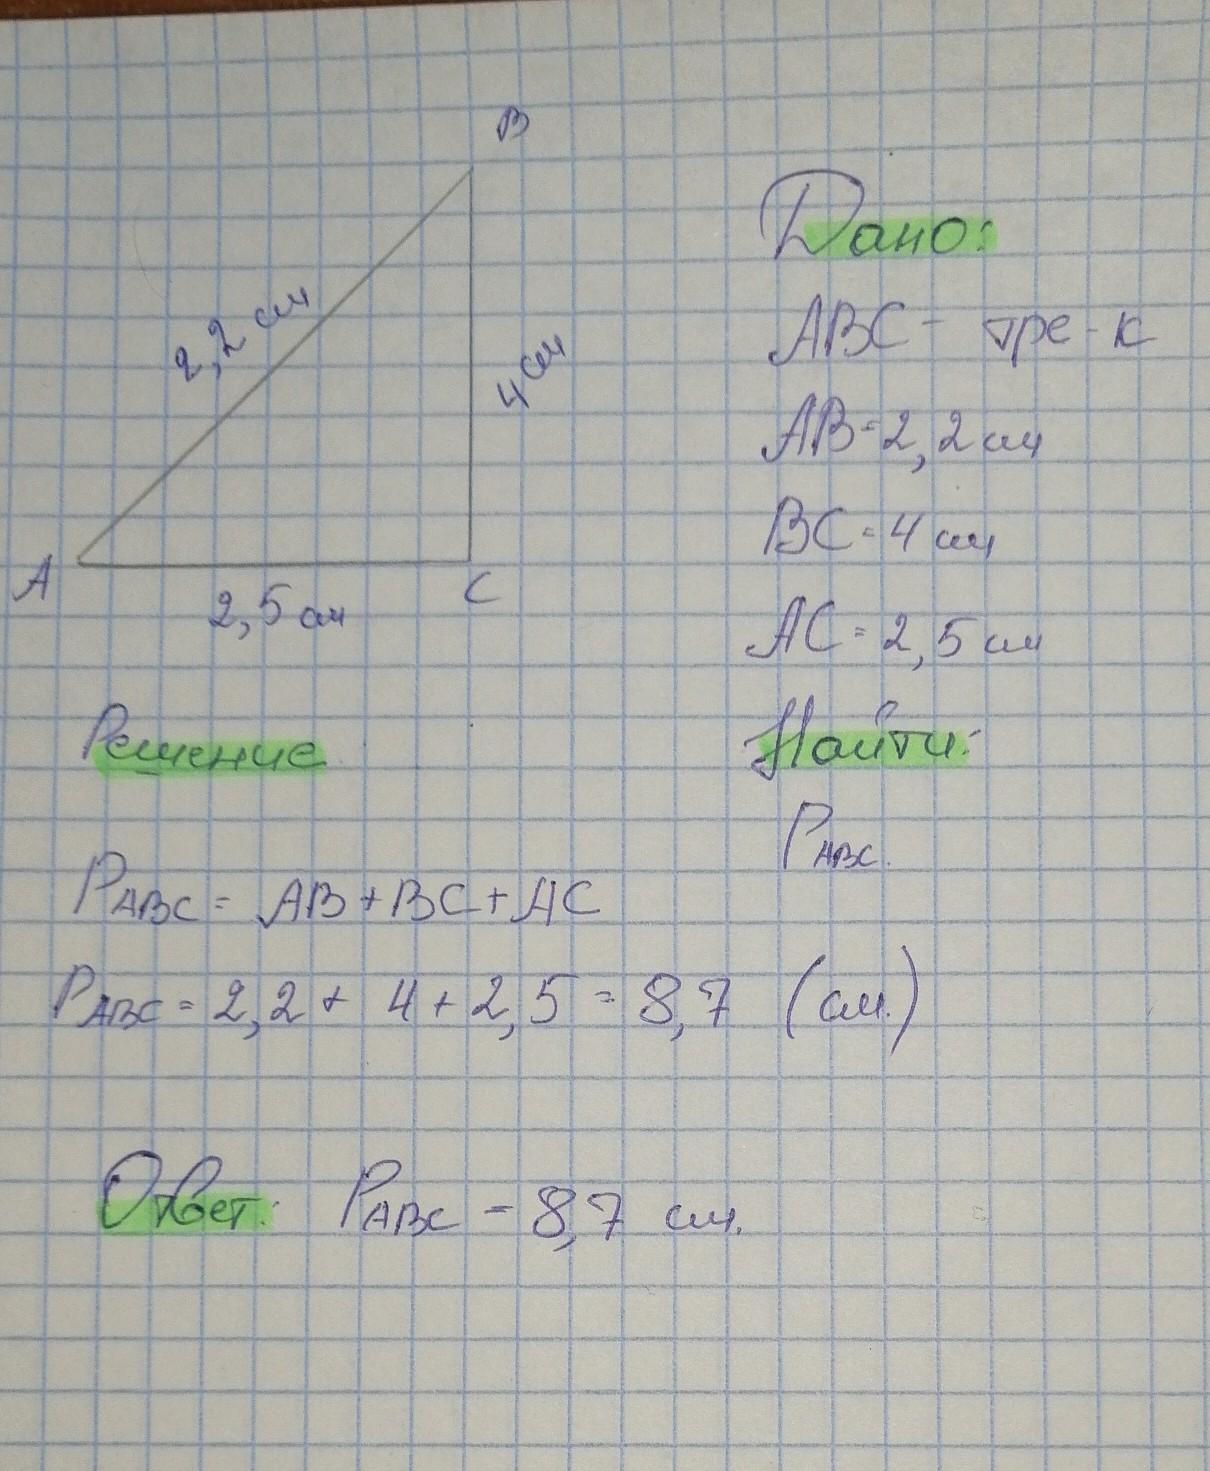 B
2,2 см
4 см
A
2,5 см
C
Дано:
ABC - тре-к
AB=2,2 см
BC=4 см
AC=2,5 см
Найти:
PABC.
Решение
PABC = AB+BC+AC
PABC = 2,2 + 4 + 2,5 = 8,7 (см.)
Ответ: PABC - 8,7 см.